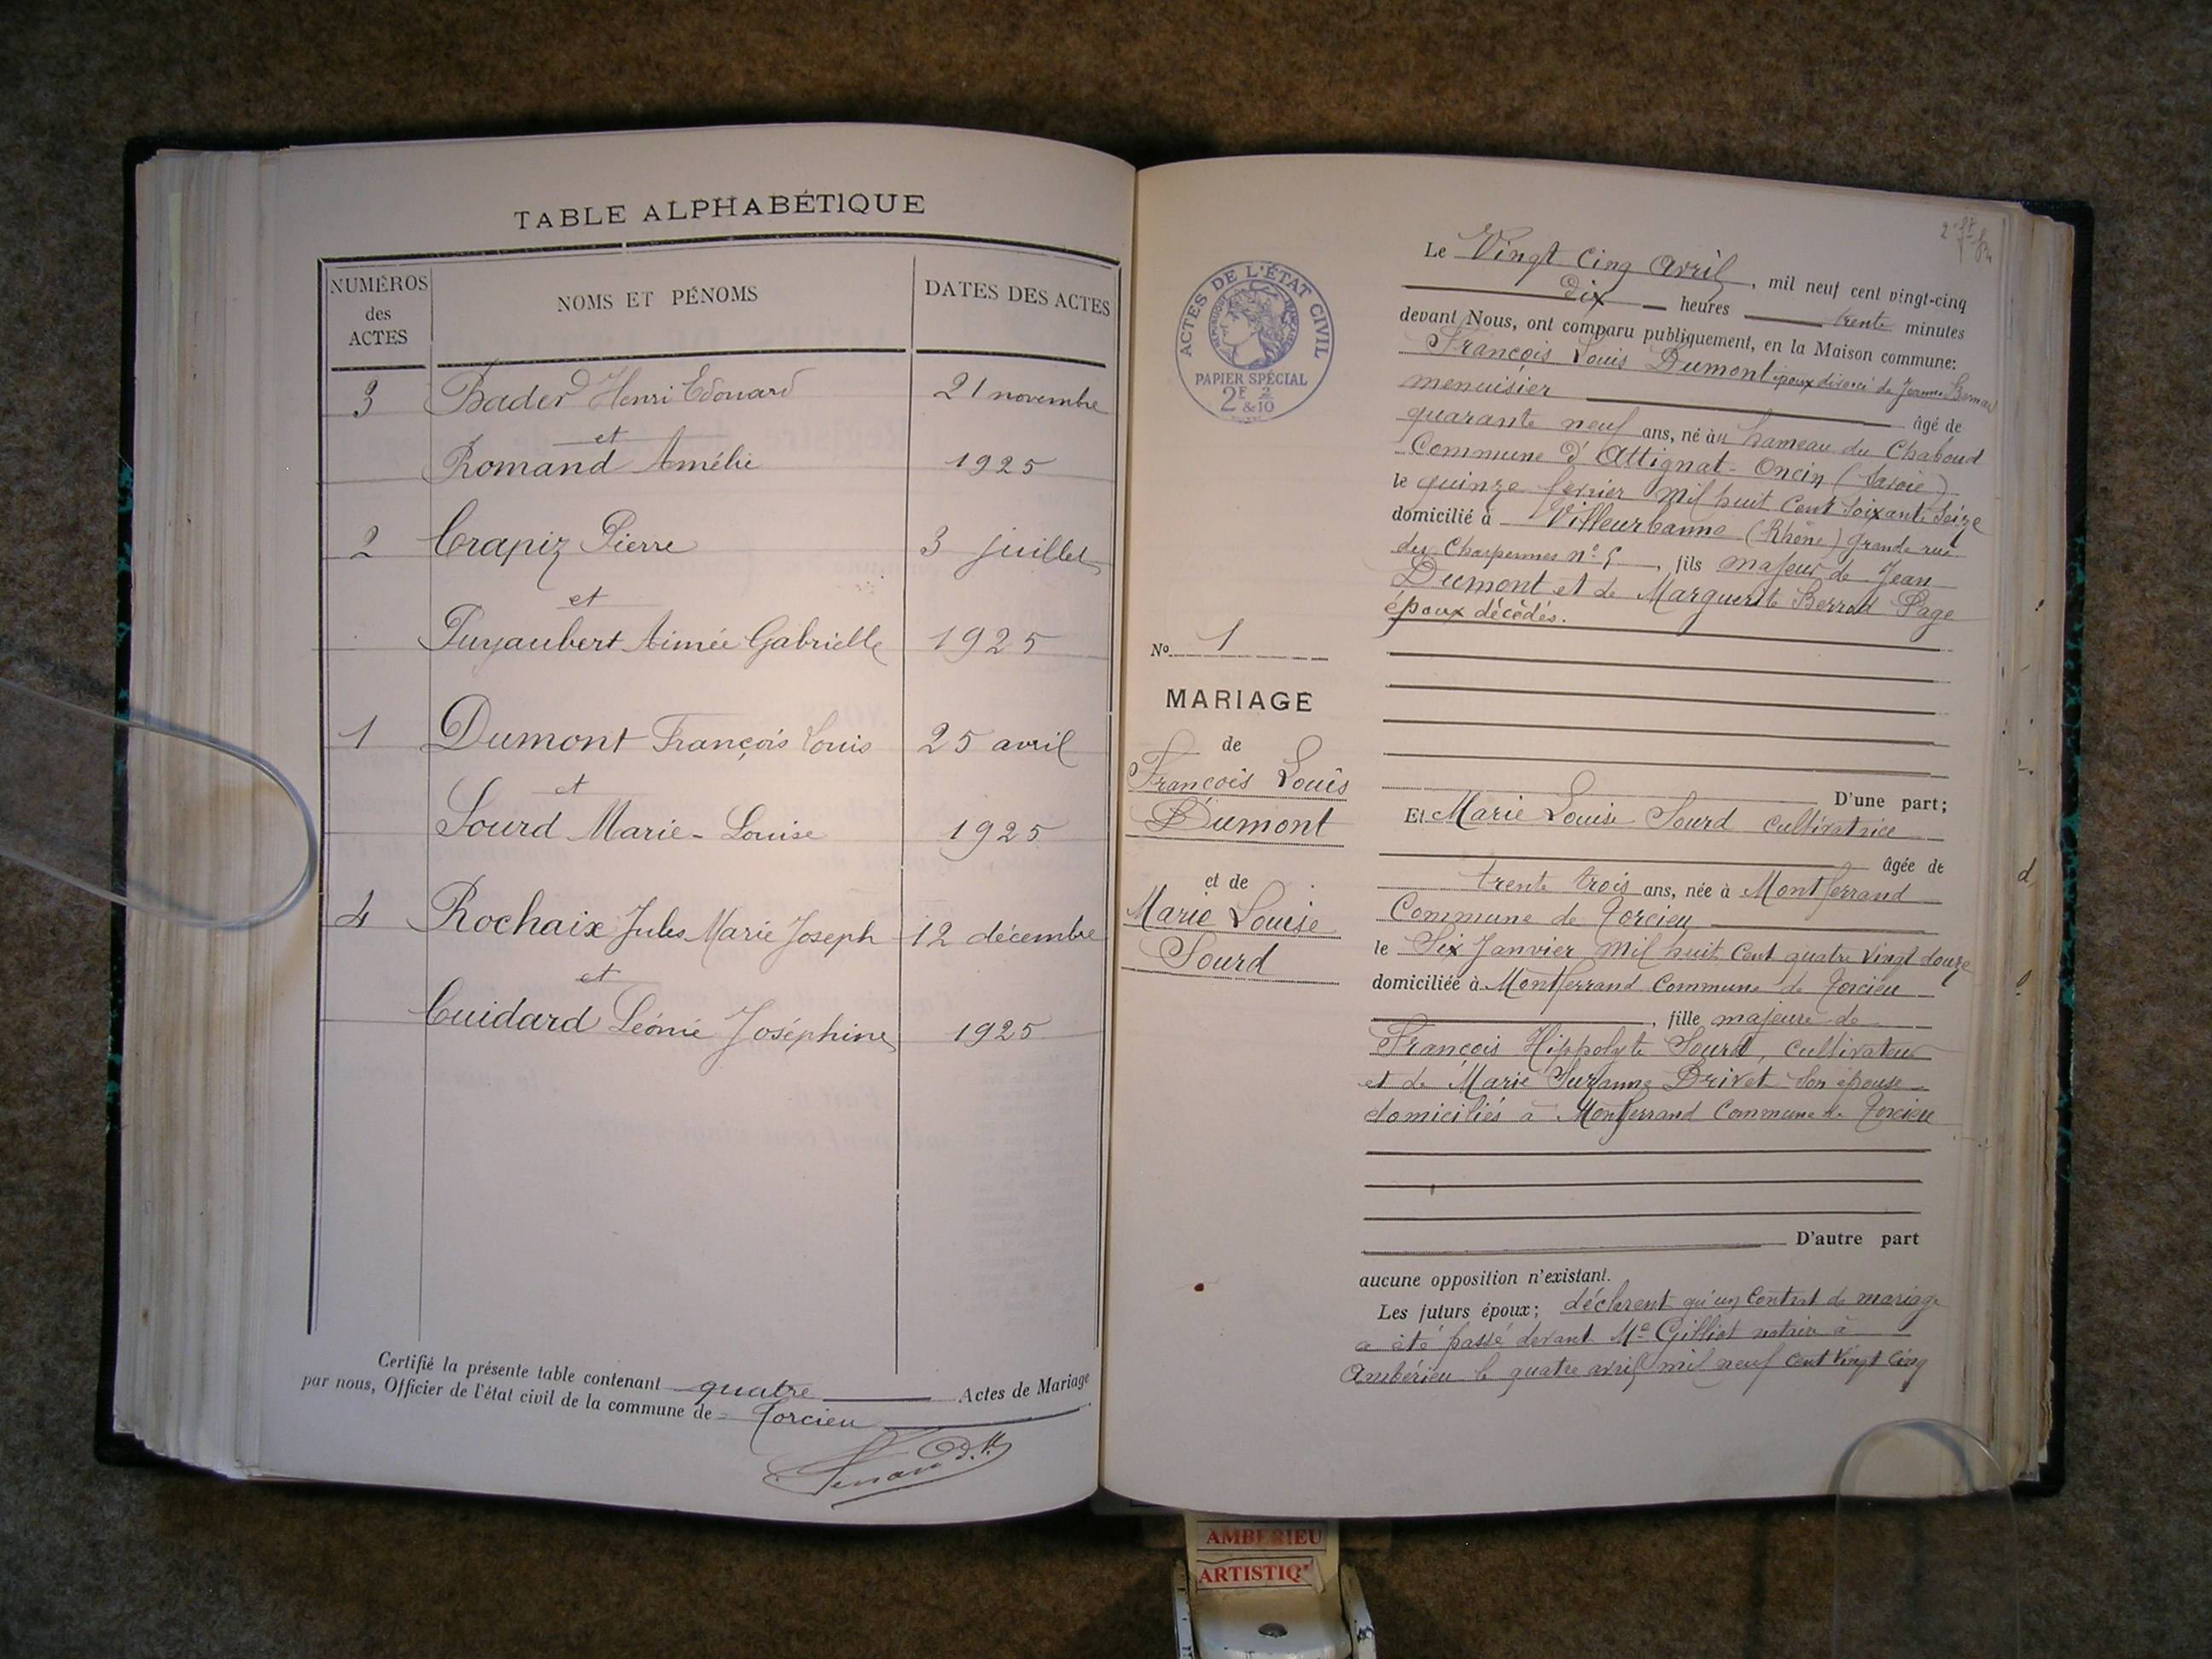 TABLE ALPHABÉTIQUE
NUMÉROS
des
ACTES
NOMS ET PÉNOMS
DATES DES ACTES
3 Bader Henri Edouard 21 novembre
et
Romand Amélie 1925
2 Crapiz Pierre 3 juillet
et
Puyaubert Aimée Gabrielle 1925
1 Dumont François Louis 25 avril
et
Sourd Marie-Louise 1925
4 Rochaix Jules Marie Joseph 12 décembre
et
Cuidard Léonie Joséphine 1925
Certifié la présente table contenant quatre Actes de Mariage
par nous, Officier de l'état civil de la commune de Torcieu
ACTES DE L'ÉTAT CIVIL
RÉPUBLIQUE FRANÇAISE
PAPIER SPÉCIAL
2F 2/10
&
No 1
MARIAGE
de
François Louis
Dumont
et de
Marie Louise
Sourd
Le Vingt Cinq Avril, mil neuf cent vingt-cinq
Dix heures trente minutes
devant Nous, ont comparu publiquement, en la Maison commune:
François Louis Dumont époux divorcé de Jeanne
menuisier âgé de
quarante neuf ans, né au hameau du Chaboud
Commune d'Attignat-Oncin (Savoie)
le quinze fevrier mil huit cent soixante seize
domicilié à Villeurbanne (Rhône) Grande rue
des Charpennes n° 5, fils majeur de Jean
Dumont et de Marguerite Berrod Page
époux décédés.
D'une part;
Et Marie Louise Sourd cultivatrice
âgée de
trente trois ans, née à Montferrand
Commune de Torcieu
le Six Janvier mil huit cent quatre vingt douze
domiciliée à Montferrand Commune de Torcieu
, fille majeure de
François Hippolyte Sourd, cultivateur
et de Marie Suzanne Drivet son épouse
domiciliés à Montferrand Commune de Torcieu
D'autre part
aucune opposition n'existant.
Les futurs époux; déclarent qu'un contrat de mariage
a été passé devant Me Gilliot notaire à
Ambérieu le quatre avril mil neuf cent vingt cinq
AMBERIEU
ARTISTIQ